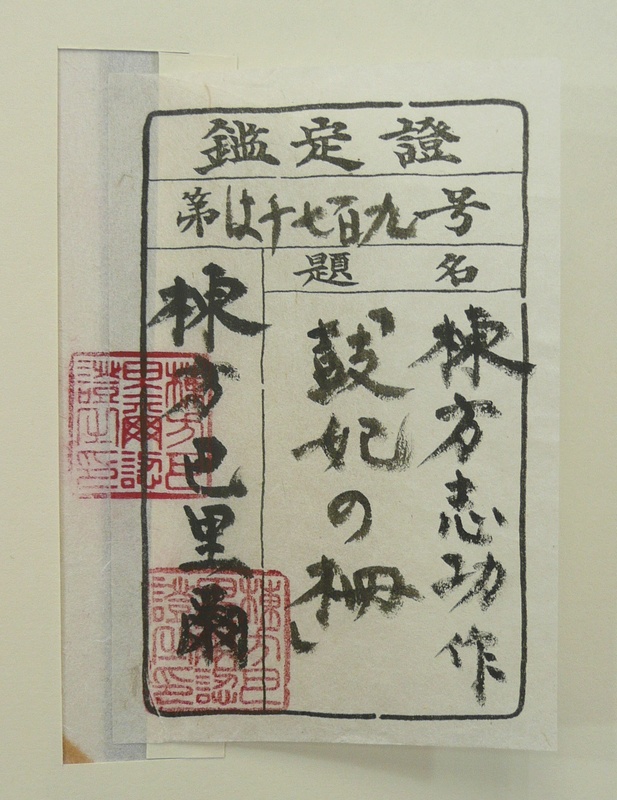 鑑定證
第は千七百九号
題名
棟方志功作
「鼓妃の柵」
棟方巴里爾
棟方巴里爾認證之印
棟方巴里爾認證之印